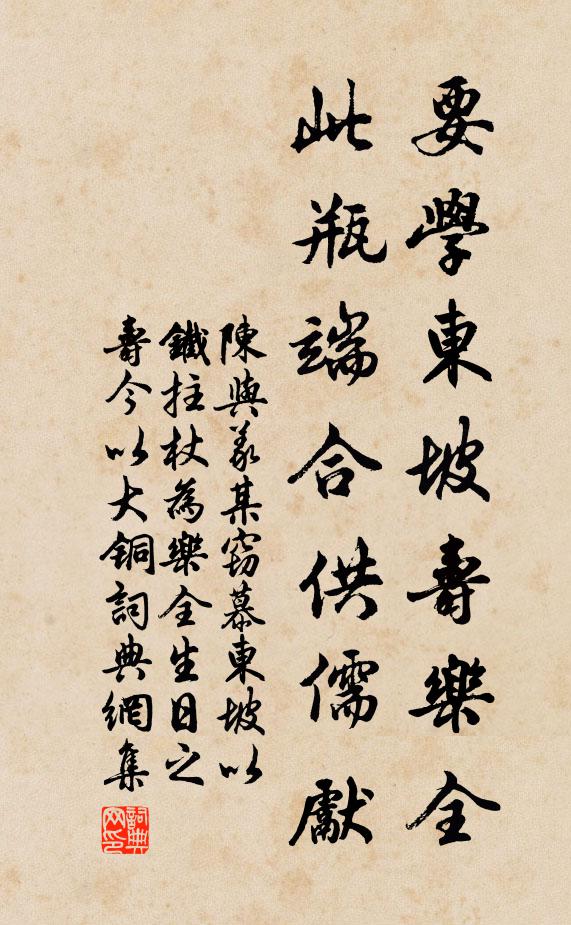 要學東坡壽樂全
此瓶端合供儒獻
陳與義某竊慕東坡以
鐵拄杖為樂全生日之
壽今以大銅詞典網集
詞典
网印